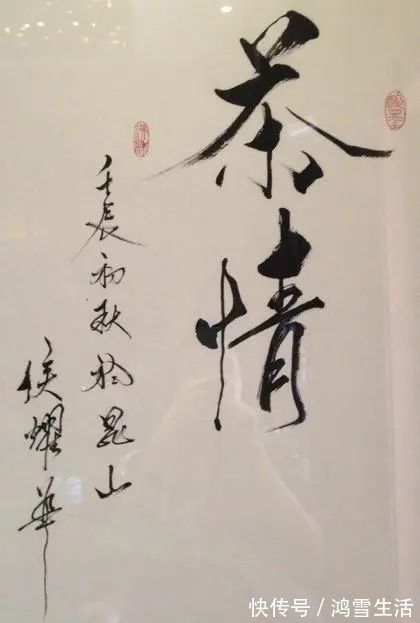 茶情
壬辰初秋於昆山
侯耀华
快传号／鸿雪生活